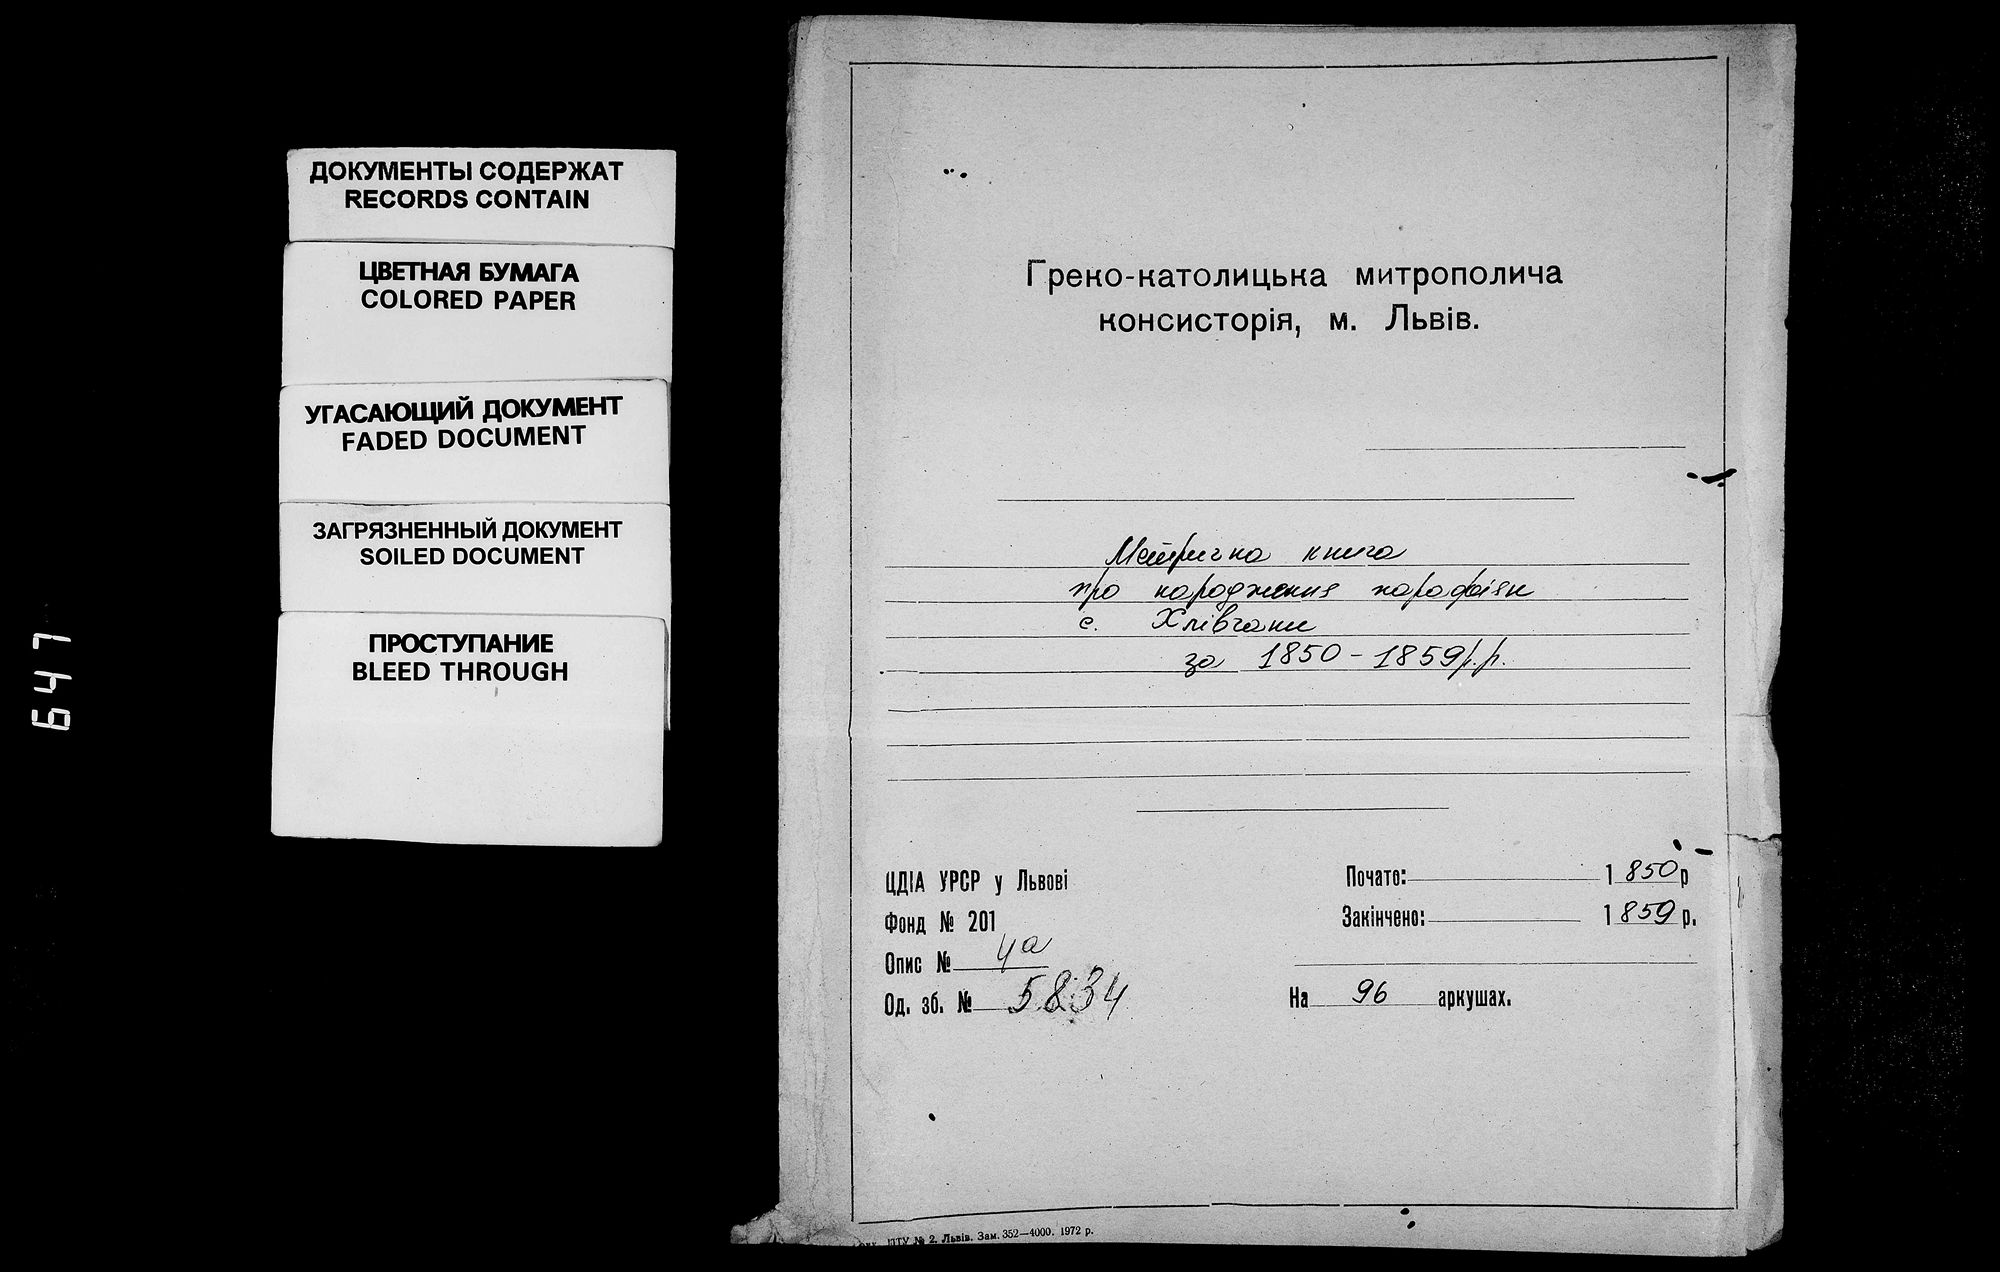 647
ДОКУМЕНТЫ СОДЕРЖАТ
RECORDS CONTAIN
ЦВЕТНАЯ БУМАГА
COLORED PAPER
УГАСАЮЩИЙ ДОКУМЕНТ
FADED DOCUMENT
ЗАГРЯЗНЕННЫЙ ДОКУМЕНТ
SOILED DOCUMENT
ПРОСТУПАНИЕ
BLEED THROUGH
Греко-католицька митрополича
консисторія, м. Львів.
Метрична книга
про народження парафіян
с. Хлівчани
за 1850-1859 р.р.
ЦДІА УРСР у Львові
Фонд № 201
Опис № 4а
Од. зб. № 5834
Почато: 1850 р
Закінчено: 1859 р.
На 96 аркушах.
ПТУ № 2. Львів. Зам. 352—4000. 1972 р.